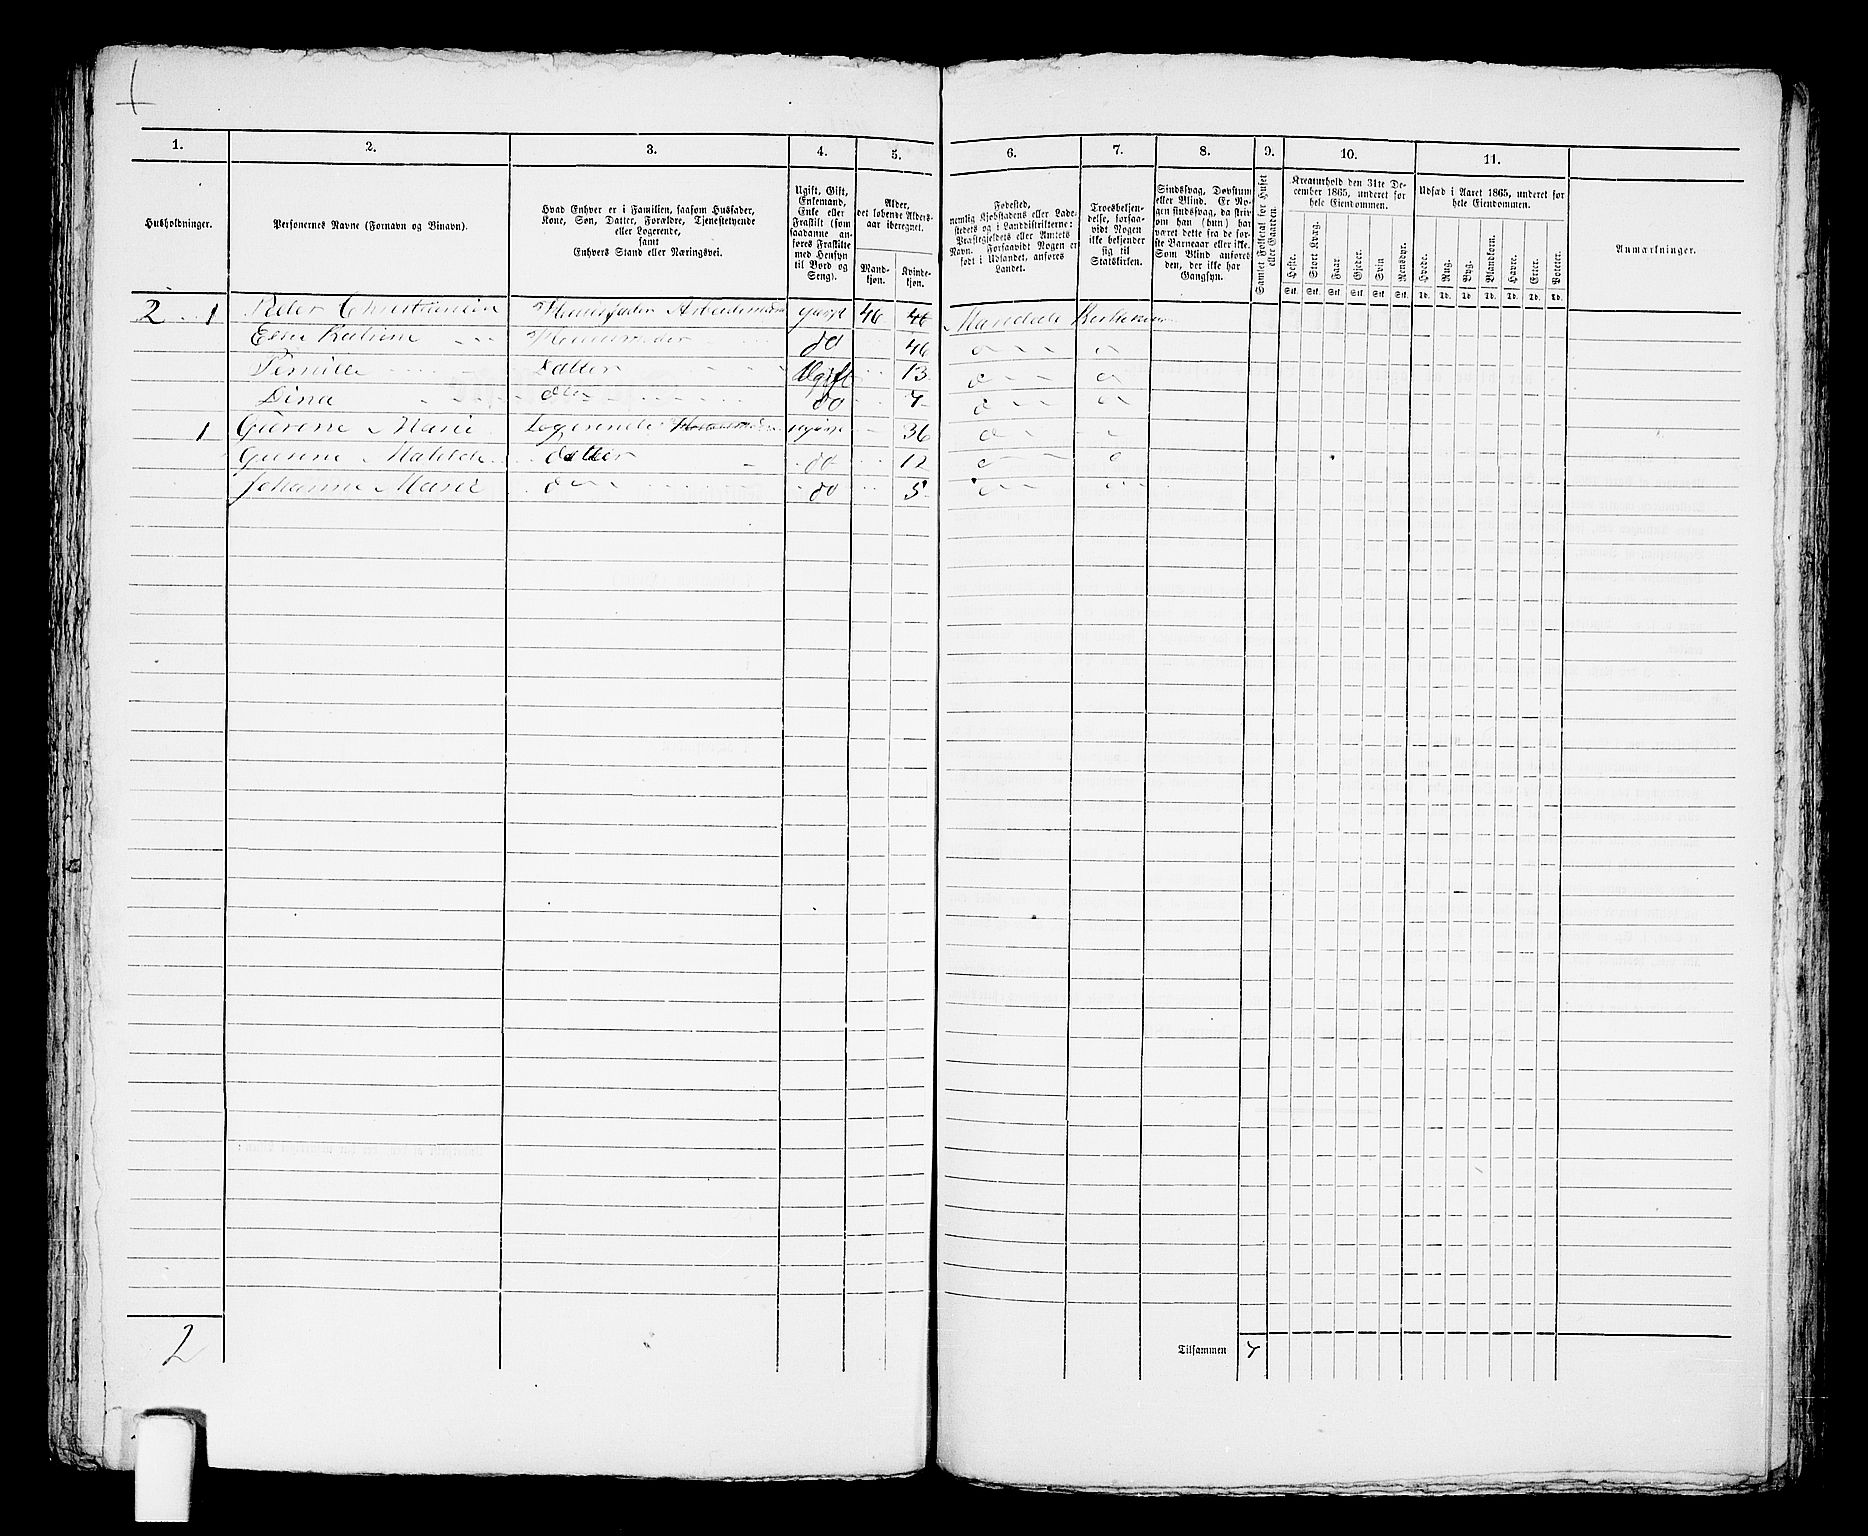 1.
2.
3.
4.
5.
6.
7.
8.
9.
10.
11.
Husholdninger.
Personernes Navne (Fornavn og Binavn).
Hvad Enhver er i Familien, saasom Husfader,
Kone, Søn, Datter, Forældre, Tjenestetyende
eller Logerende,
samt
Enhvers Stand eller Næringsvei.
Ugift, Gift,
Enkemand,
Enke eller
Fraskilt (som
saadanne an-
føres Fraskilte
med Hensyn
til Bord og
Seng).
Alder,
det løbende Alders-
aar iberegnet.
Mand-
kjøn.
Kvinde-
kjøn.
Fødested,
nemlig Kjøbstadens eller Lade-
stedets og i Landdistrikterne:
Præstegjeldets eller Amtets
Navn. Forsaavidt Nogen er
født i Udlandet, anføres
Landet.
Troesbekjen-
delse, forsaa-
vidt Nogen
ikke bekjender
sig til
Statskirken.
Sindssvag, Døvstum
eller Blind. Er No-
gen sindssvag, da skriv
om han (hun) har
været dette fra de før-
ste Barneaar eller ikke.
Som Blind anføres
den, der ikke har
Gangsyn.
Samlet Folketal for Huset
eller Gaarden.
Kreaturhold den 31te De-
cember 1865, underet for
hele Eiendommen.
Heste. Stort Kvæg. Faar. Gjeder. Svin Rensdyr.
Stk. Stk. Stk. Stk. Stk. Stk.
Udsæd i Aaret 1865, underet for
hele Eiendommen.
Hvede. Rug. Byg. Blandkorn. Havre. Erter. Poteter.
Td. Td. Td. Td. Td. Td. Td.
Anmærkninger.
2 1 Peder Christiansen Huusfader Arbeidsmand gift 46 46 Mandal
Katrine do 46
Pernille Datter Ugift 13
Dina do 7
1 Marie Logerende 36
Matilde Datter do 12
Johanne Marie do 5
2
Tilsammen 7